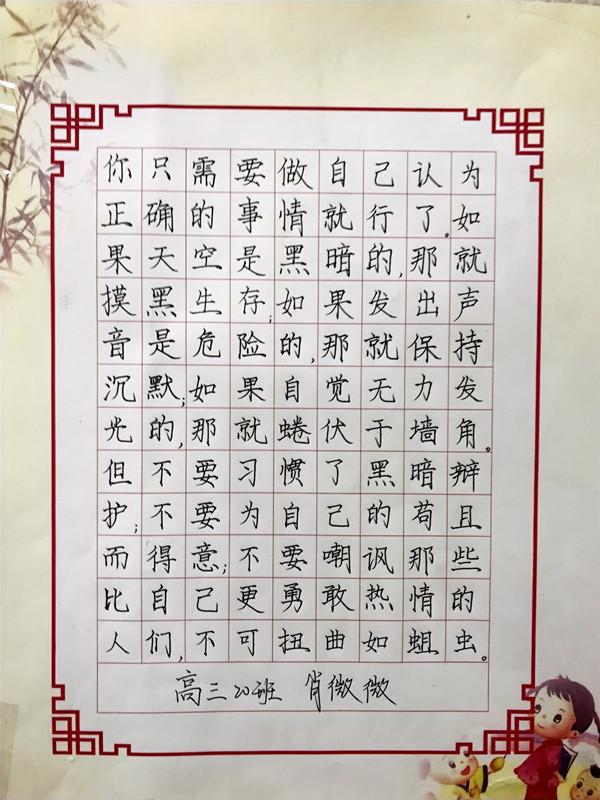 你只需要做自己认为
正确的事情就行了。如
果天空是黑暗的,那就
摸黑生存;如果发出声
音是危险的,那就保持
沉默;如果自觉无力发
光的,那就蜷伏于墙角。
但不要习惯了黑暗辩
护;不要为自己的苟且
而得意;不要嘲讽那些
比自己更勇敢热情的
人们,不可扭曲如蛆虫。
高三20班 肖微微